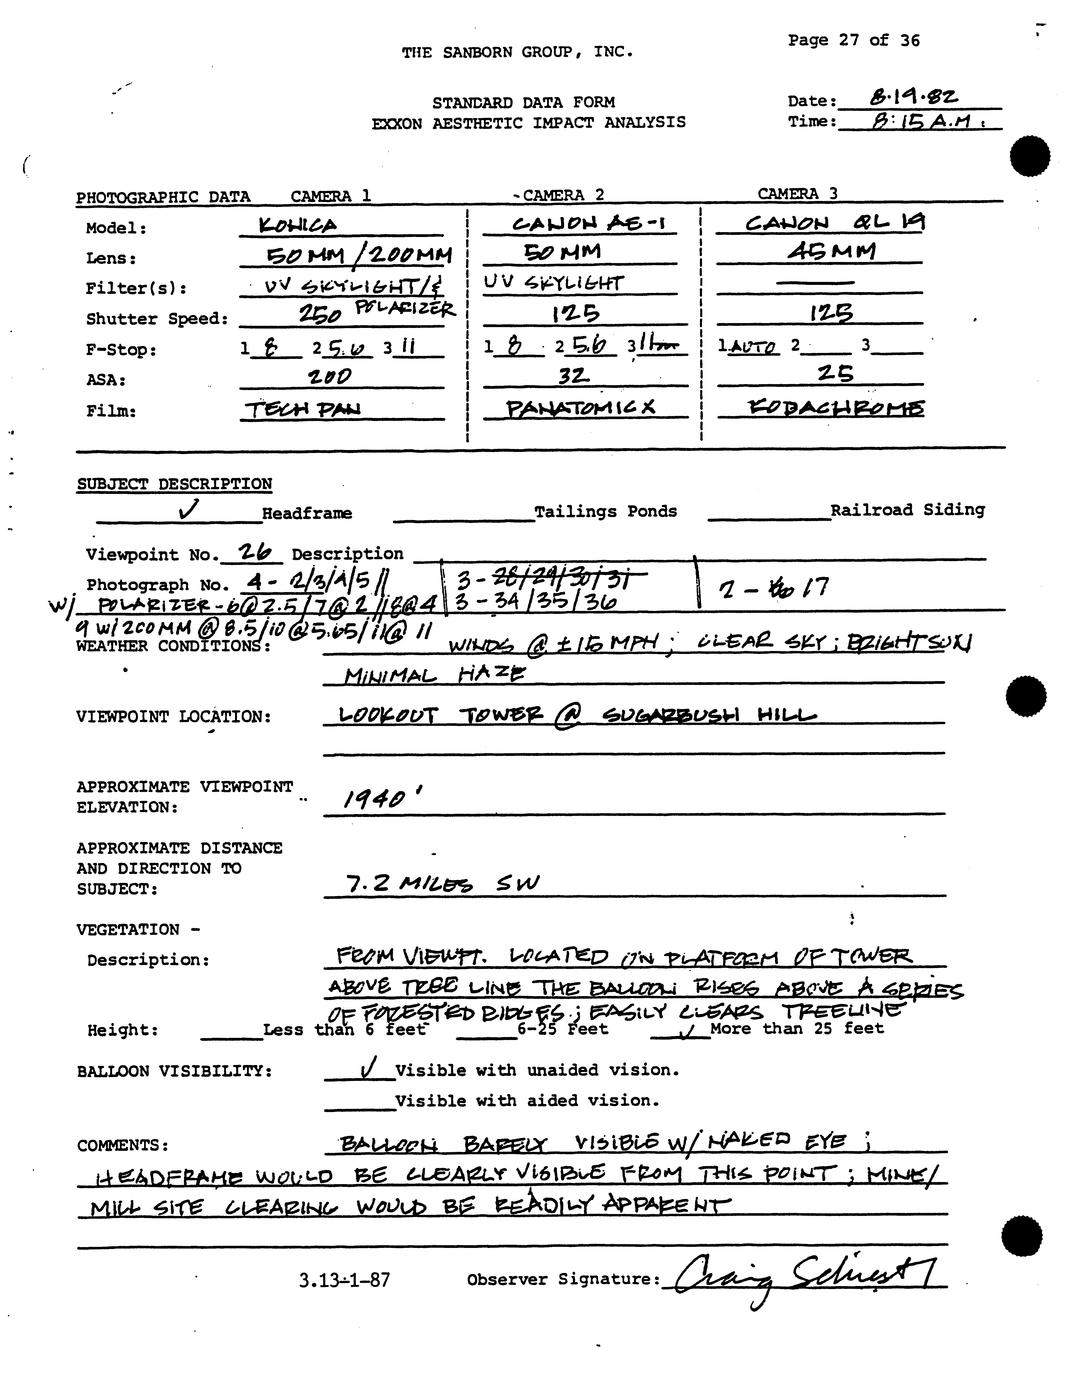 Page 27 of 36
THE SANBORN GROUP, INC.
STANDARD DATA FORM
Date: 8·19·82
EXXON AESTHETIC IMPACT ANALYSIS
Time: 8:15 A.M.
PHOTOGRAPHIC DATA CAMERA 1 CAMERA 2 CAMERA 3
Model: KONICA CANON AE-1 CANON QL 19
Lens: 50 MM /200MM 50 MM 45MM
Filter(s): UV SKYLIGHT/& UV SKYLIGHT
POLARIZER
Shutter Speed: 250 125 125
F-Stop: 1 8 2 5.6 3 11 1 8 2 5.6 3 11 1 AUTO 2 3
ASA: 200 32 25
Film: TECH PAN PANATOMIC X KODACHROME
SUBJECT DESCRIPTION
✓ Headframe Tailings Ponds Railroad Siding
Viewpoint No. 26 Description
Photograph No. 4 - 2/3/4/5 // 3 - 28/29/30/31 2 - 17
W/ POLARIZER - 6@2.5/7@2 /8@4 3 - 34/35/36
9 W/ 200MM @ 8.5/10@5.65/11@ 11
WEATHER CONDITIONS: WINDS @ ±15 MPH; CLEAR SKY; BRIGHT SUN
MINIMAL HAZE
VIEWPOINT LOCATION: LOOKOUT TOWER @ SUGARBUSH HILL
APPROXIMATE VIEWPOINT
ELEVATION: 1940'
APPROXIMATE DISTANCE
AND DIRECTION TO
SUBJECT: 7.2 MILES SW
VEGETATION -
Description: FROM VIEWPT. LOCATED ON PLATFORM OF TOWER
ABOVE TREE LINE THE BALLOON RISES ABOVE A SERIES
OF FORESTED RIDGES; EASILY CLEARS TREELINE
Height: Less than 6 feet 6-25 Feet ✓ More than 25 feet
BALLOON VISIBILITY: ✓ Visible with unaided vision.
Visible with aided vision.
COMMENTS: BALLOON BARELY VISIBLE W/ NAKED EYE;
HEADFRAME WOULD BE CLEARLY VISIBLE FROM THIS POINT; MINE/
MILL SITE CLEARING WOULD BE READILY APPARENT
3.13-1-87 Observer Signature: Craig